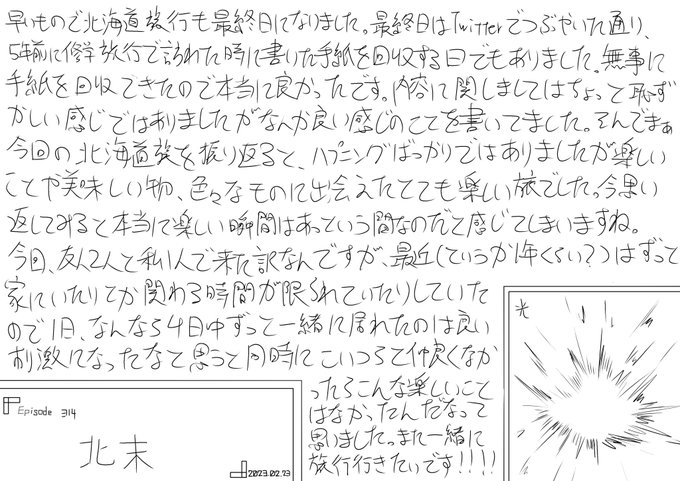 早いもので北海道旅行も最終日になりました。最終日はTwitterでつぶやいた通り、
5年前に修学旅行で訪れた時に書いた手紙を回収する日でもありました。無事に
手紙を回収できたので本当に良かったです。内容に関しましてはちょっと恥ず
かしい感じではありましたがなんか良い感じのことを書いてました。そんでまぁ
今回の北海道旅を振り返ると、ハプニングばっかりではありましたが楽しい
ことや美味しい物、色々なものに出会えたとても楽しい旅でした。今思い
返してみると本当に楽しい瞬間はあっという間なのだと感じてしまいますね。
今回、友人2人と私1人で来た訳なんですが、最近(ていうか1年くらい?)はずっと
家にいたりとか関わる時間が限られていたりしていた
ので1日、なんなら4日中ずっと一緒に居れたのは良い
刺激になったなと思うと同時にこいつらと仲良くなか
ったらこんな楽しいこと
はなかったんだなって
思いました。また一緒に
旅行行きたいです!!!!
Episode 314
北末
2023.02.23